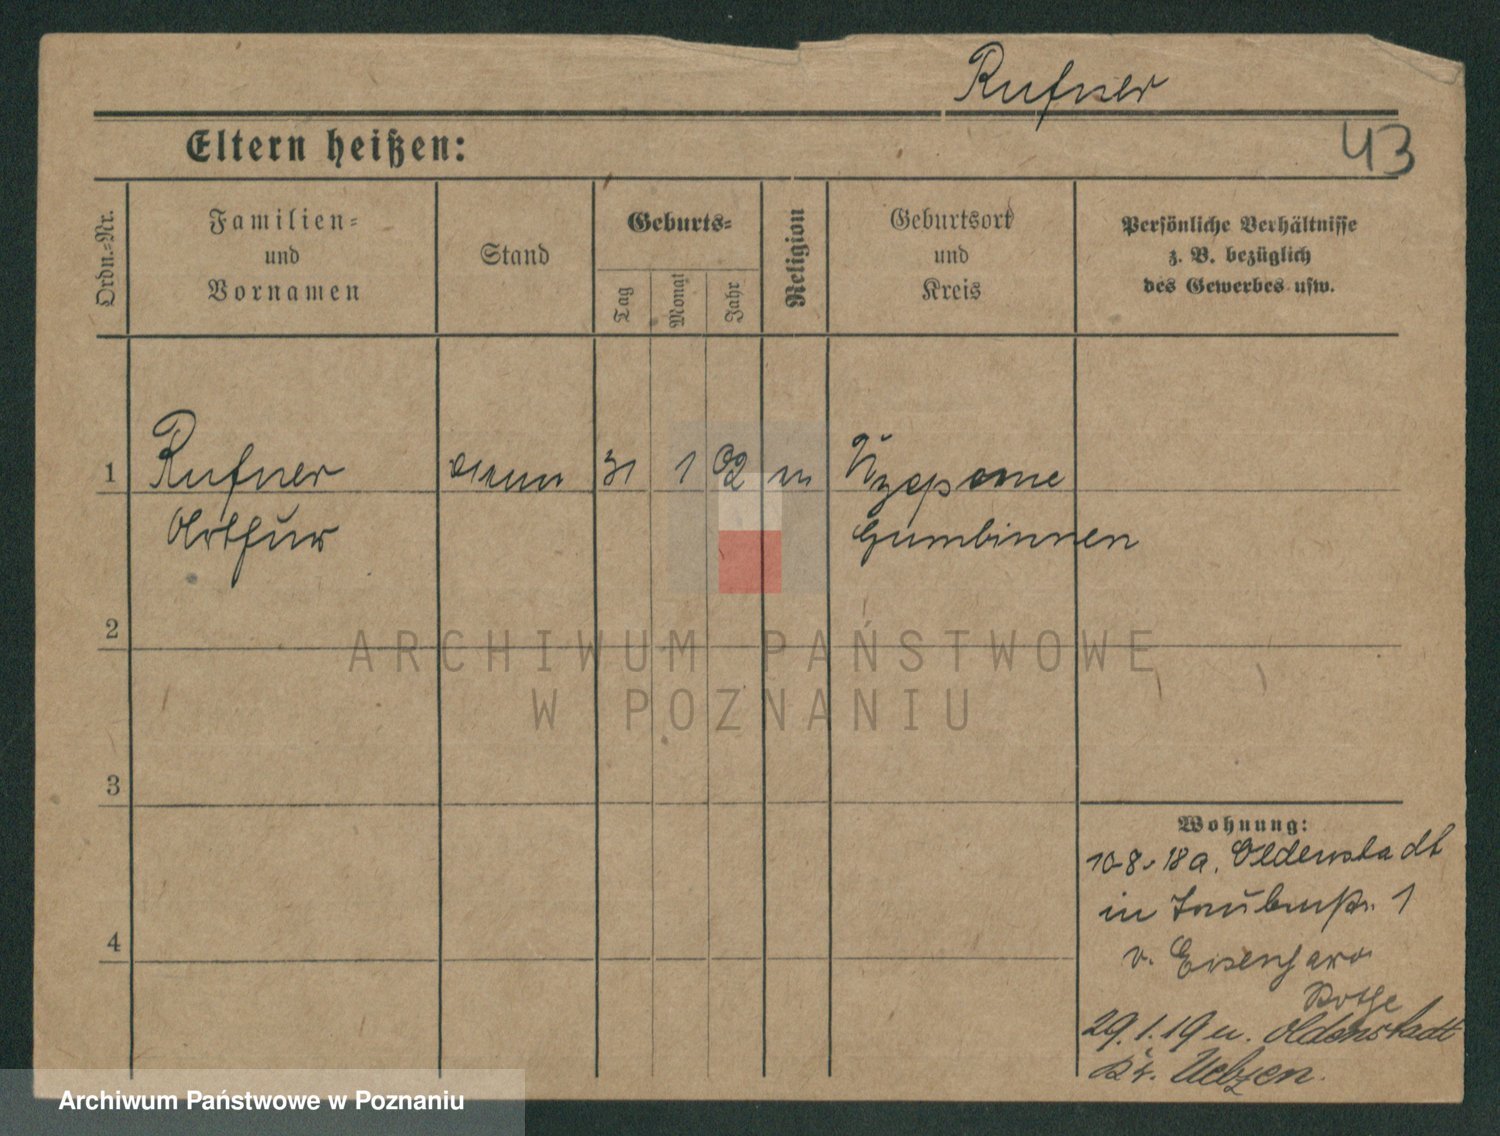 Rufner
43
Eltern heißen:
Ordn.-Nr.
Familien-
und
Vornamen
Stand
Geburts-
Tag
Monat
Jahr
Religion
Geburtsort
und
Kreis
Persönliche Verhältnisse
z. B. bezüglich
des Gewerbes usw.
1 Rufner 31 1 02
Arthur Gumbinnen
2
3
4
Wohnung:
10.8.18 a. Oldenstadt
in 1
v.
29.1.19 u. Oldenstadt
Kr. Uelzen.
ARCHIWUM PAŃSTWOWE
W POZNANIU
Archiwum Państwowe w Poznaniu